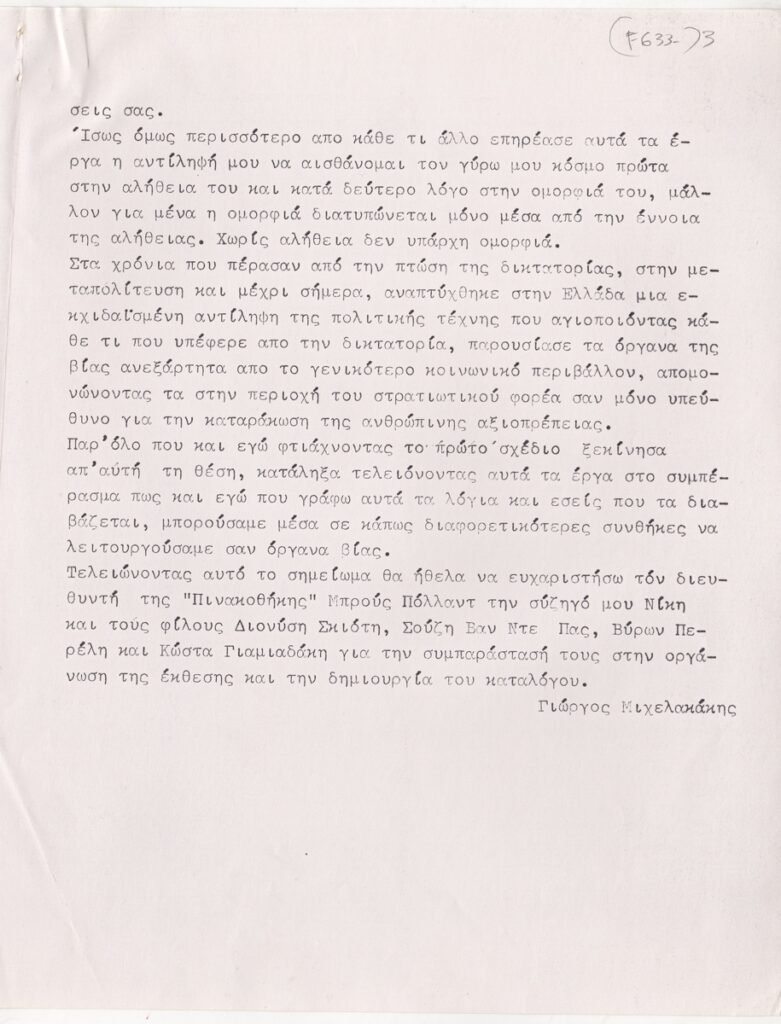 (F633-)3
σεις σας.
Ίσως όμως περισσότερο απο κάθε τι άλλο επηρέασε αυτά τα έ-
ργα η αντίληψή μου να αισθάνομαι τον γύρω μου κόσμο πρώτα
στην αλήθεια του και κατά δεύτερο λόγο στην ομορφιά του, μάλ-
λον για μένα η ομορφιά διατυπώνεται μόνο μέσα από την έννοια
της αλήθειας. Χωρίς αλήθεια δεν υπάρχη ομορφιά.
Στα χρόνια που πέρασαν από την πτώση της δικτατορίας, στην με-
ταπολίτευση και μέχρι σήμερα, αναπτύχθηκε στην Ελλάδα μια ε-
κχιδαϊσμένη αντίληψη της πολιτικής τέχνης που αγιοποιόντας κά-
θε τι που υπέφερε απο την δικτατορία, παρουσίασε τα όργανα της
βίας ανεξάρτητα απο το γενικότερο κοινωνικό περιβάλλον, απομο-
νώνοντας τα στην περιοχή του στρατιωτικού φορέα σαν μόνο υπεύ-
θυνο για την καταράκωση της ανθρώπινης αξιοπρέπειας.
Παρ'όλο που και εγώ φτιάχνοντας το πρώτο σχέδιο ξεκίνησα
απ'αύτή τη θέση, κατάληξα τελειόνοντας αυτά τα έργα στο συμπέ-
ρασμα πως και εγώ που γράφω αυτά τα λόγια και εσείς που τα δια-
βάζεται, μπορούσαμε μέσα σε κάπως διαφορετικότερες συνθήκες να
λειτουργούσαμε σαν όργανα βίας.
Τελειώνοντας αυτό το σημείωμα θα ήθελα να ευχαριστήσω τόν διευ-
θυντή της "Πινακοθήκης" Μπρούς Πόλλαντ την σύζηγό μου Νίκη
και τους φίλους Διονύση Σκιότη, Σούζη Βαν Ντε Πας, Βύρων Πε-
ρέλη και Κώστα Γιαμιαδάκη για την συμπαράστασή τους στην οργά-
νωση της έκθεσης και την δημιουργία του καταλόγου.
Γιώργος Μιχελακάκης